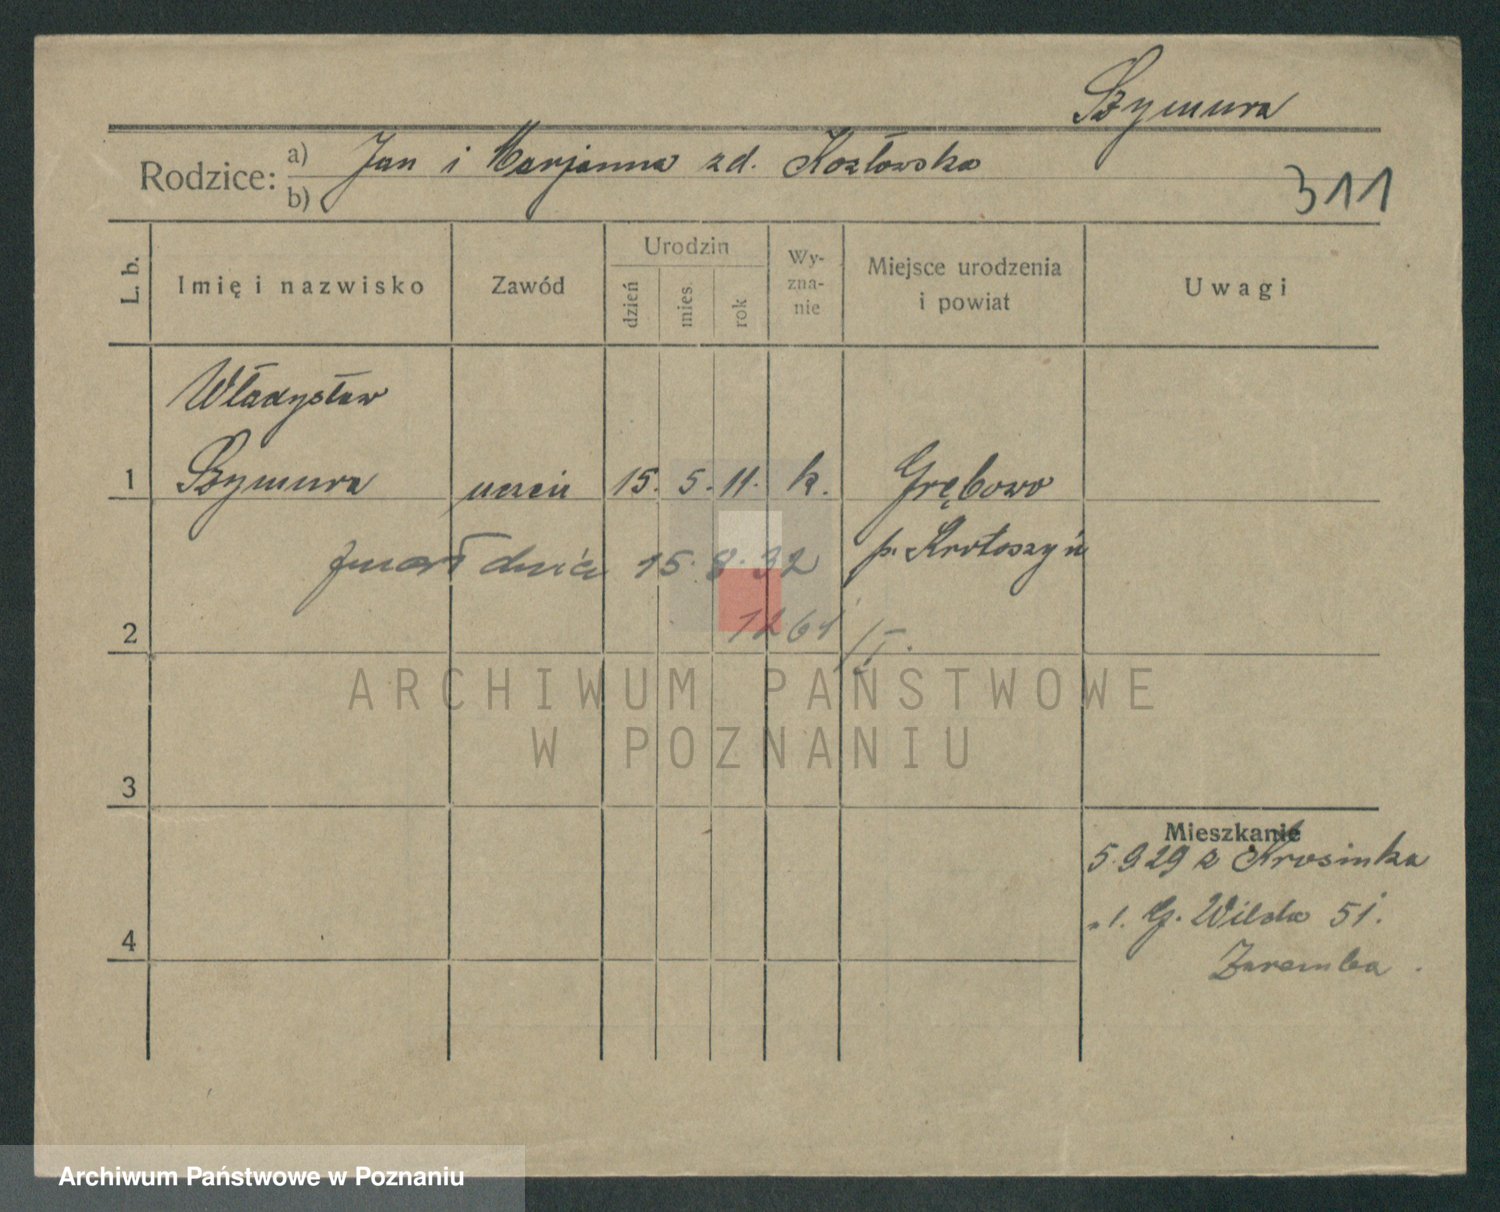 Szymura
Rodzice: a) Jan i Marjanna zd. Kozłowska
b)
311
L. b.
Imię i nazwisko
Zawód
Urodzin
dzień
mies.
rok
Wy-
zna-
nie
Miejsce urodzenia
i powiat
Uwagi
Władysław
1 Szymura uczeń 15. 5. 11. k. Grębowo
p. Krotoszyń
zmarł dnia 15. 8. 32
1261/II.
2
ARCHIWUM PAŃSTWOWE
W POZNANIU
3
Mieszkanie
5.9 29 z Krosinka
G. Wilda 51.
Zaremba
4
Archiwum Państwowe w Poznaniu